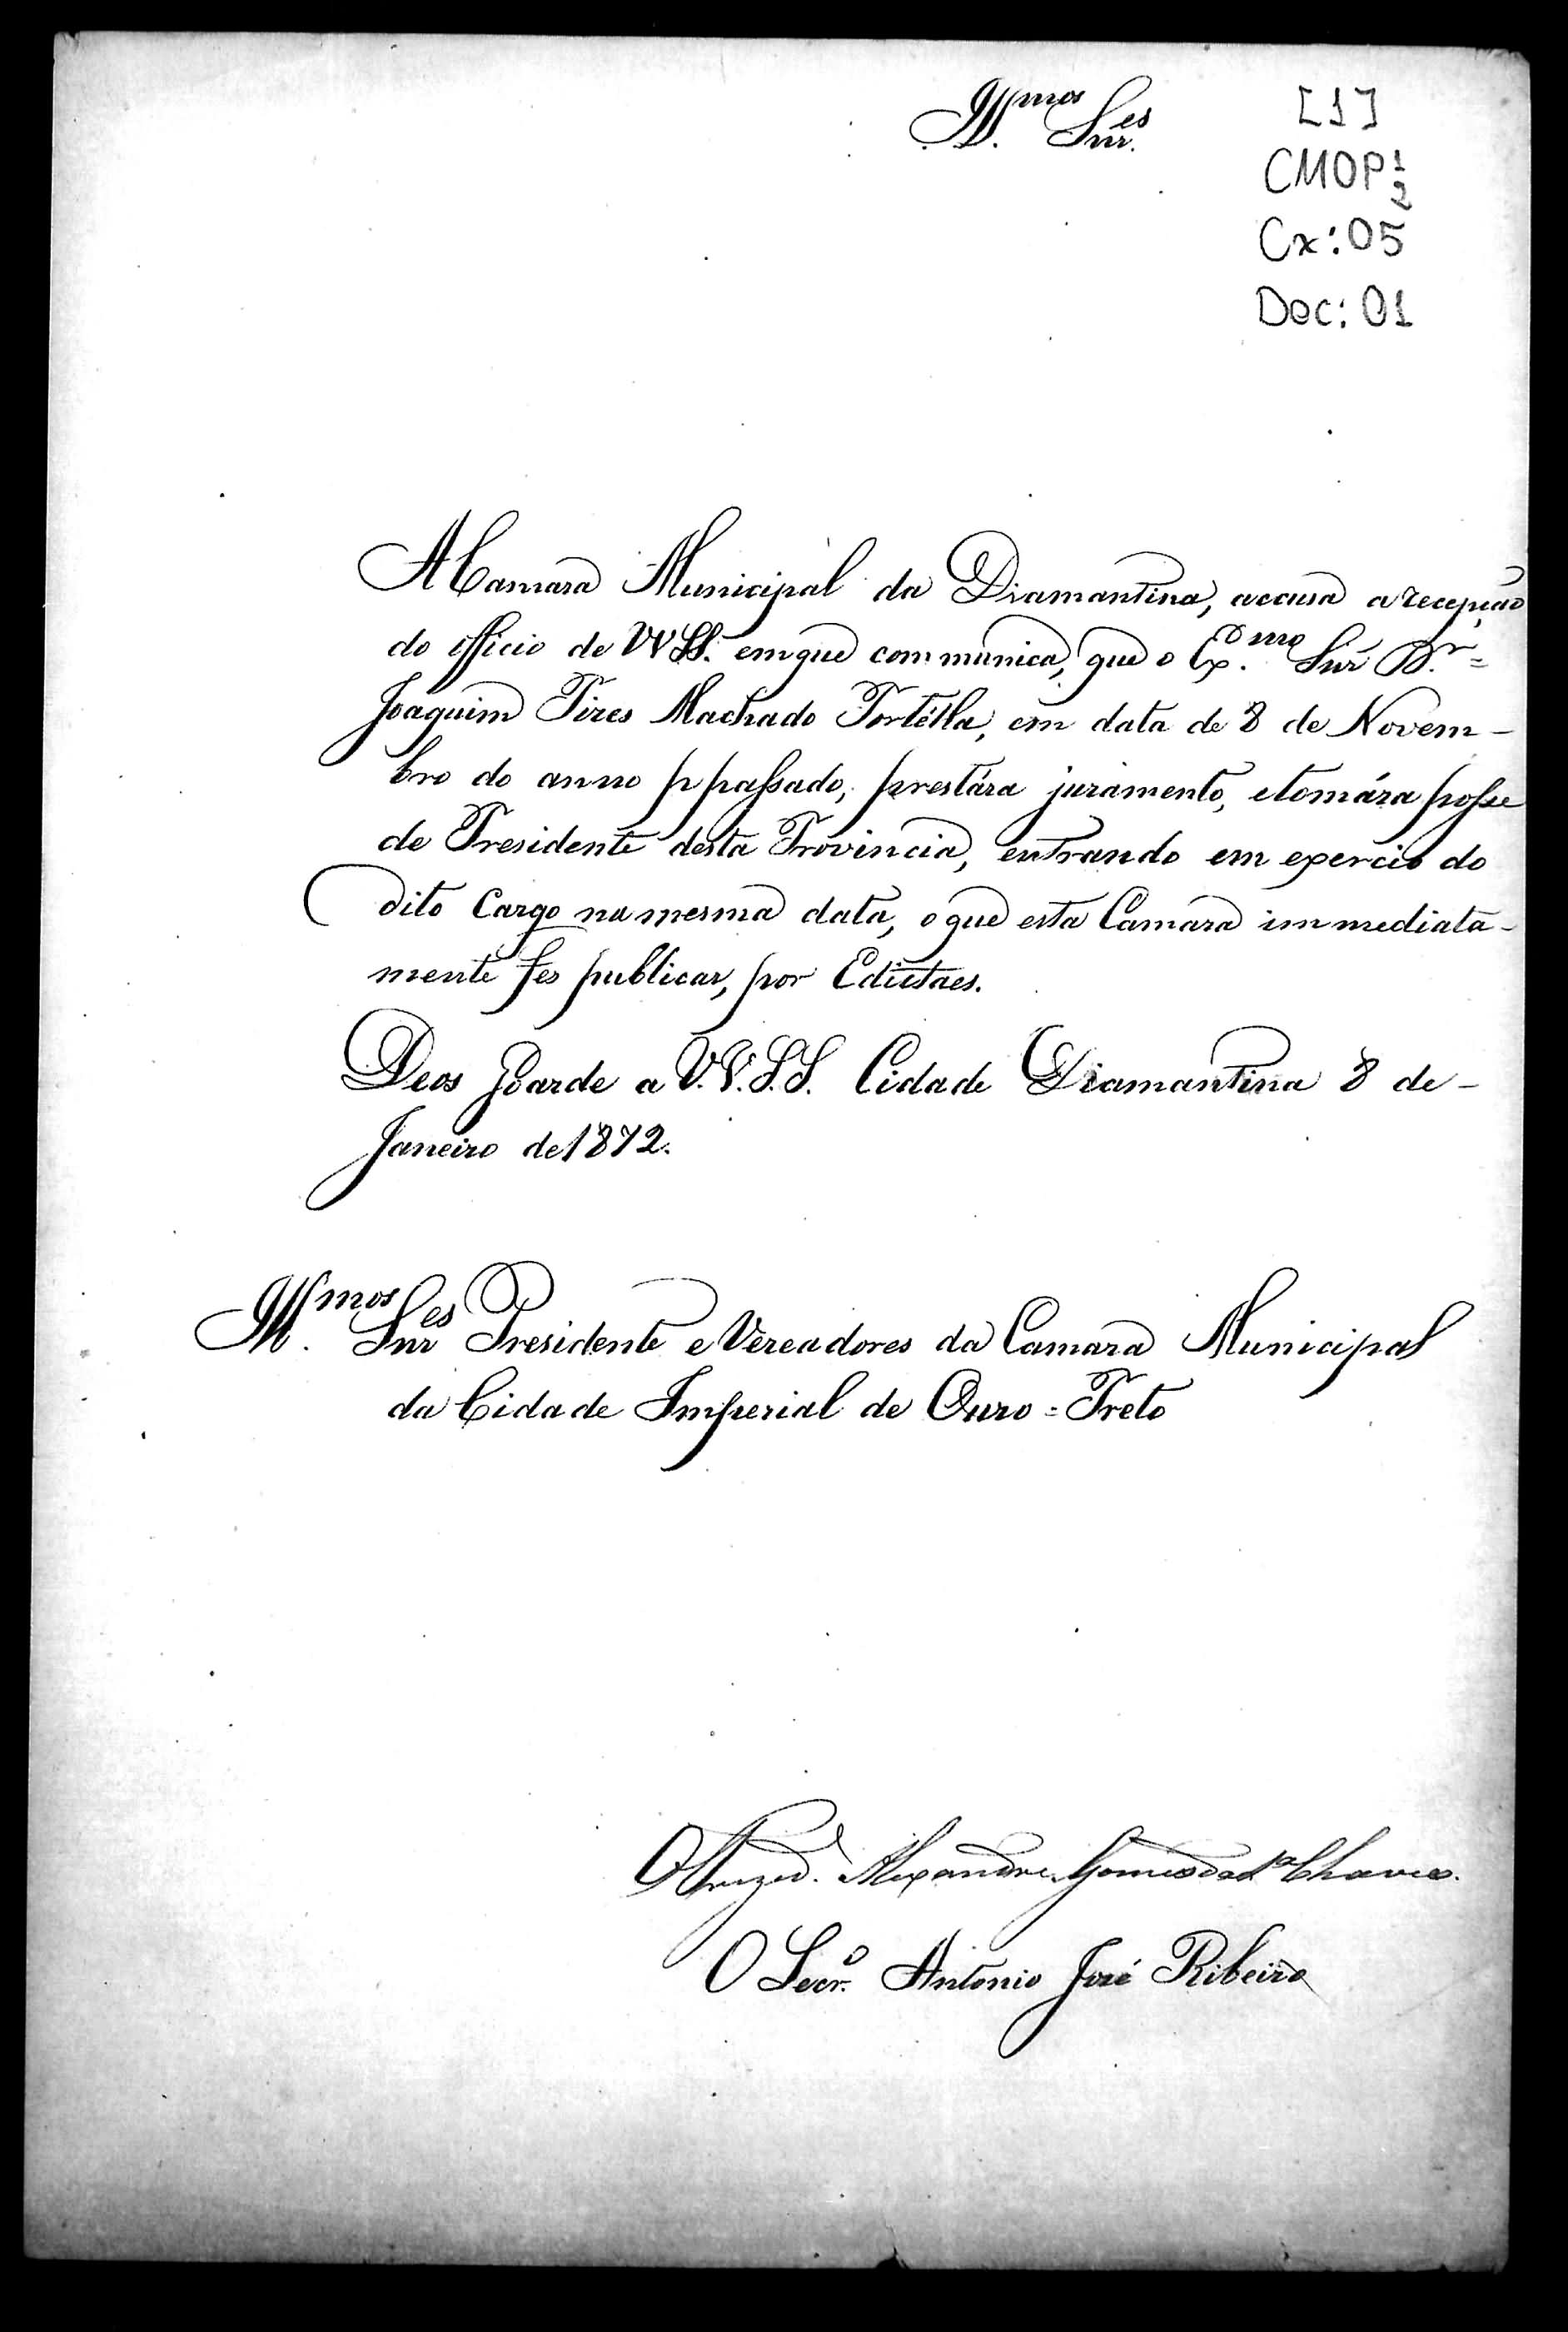 Illmos Snres
[1]
CMOP 1/2
Cx: 05
Doc: 01
A Camara Municipal da Diamantina, accusa a recepção
do officio de VVSS. em que communica, que o Exmo Snr Dr=
Joaquim Pires Machado Portélla, em data de 8 de Novem-
bro do anno p passado, prestára juramento, e tomára posse
de Presidente desta Provincia, entrando em exercio do
dito Cargo na mesma data, o que esta Camara immediata-
mente fes publicar, por Edictaes.
Deos Goarde a V.V.S.S. Cidade Diamantina 8 de-
Janeiro de 1872.
Illmos Snres Presidente e Vereadores da Camara Municipal
da Cidade Imperial de Ouro=Preto
Alexandre Gomes da Sa Chaves.
O Secro. Antonio José Ribeiro